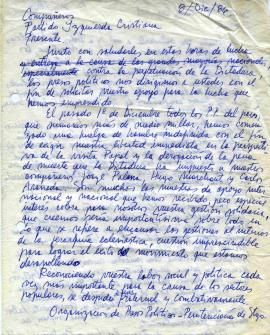 9/Dic/86
Compañeros
Partido Izquierda Cristiana
Presente
Junto con saludarles, en estas horas de lucha
y entrega a la causa de los grandes mayorías nacionales,
especialmente contra la perpetuación de la Dictadura
los presos políticos nos dirigimos a ustedes con el
fin de solicitar vuestro apoyo para la lucha que
hemos emprendido.
El pasado 1º de Diciembre todos los PP del país
que sumamos más de medio millar, hemos comen-
zado una huelga de hambre indefinida con el fin
de exigir nuestra libertad inmediata en la perspecti-
va de la visita Papal y la derogación de la pena
de muerte que la dictadura ha impuesto a nuestros
compañeros Jorge Palma, Hugo Marchant y Carlos
Araneda. Son muchas las muestras de apoyo inter-
nacional y nacional que hemos recibido, pero especial
interés cobra para nosotros vuestra gestión solidaria
que creemos sería importantísima sobre todo en
lo que se refiere a encauzar las gestiones al interior
de la jerarquía eclesiástica, cuestión imprescindible
para lograr el éxito del movimiento que estamos
desarrollando.
Reconociendo vuestra labor social y política cada
vez más importante para la causa de los sectores
populares, se despide fraternal y combativamente.
Organización de Presos Políticos - Penitenciaría de Stgo.